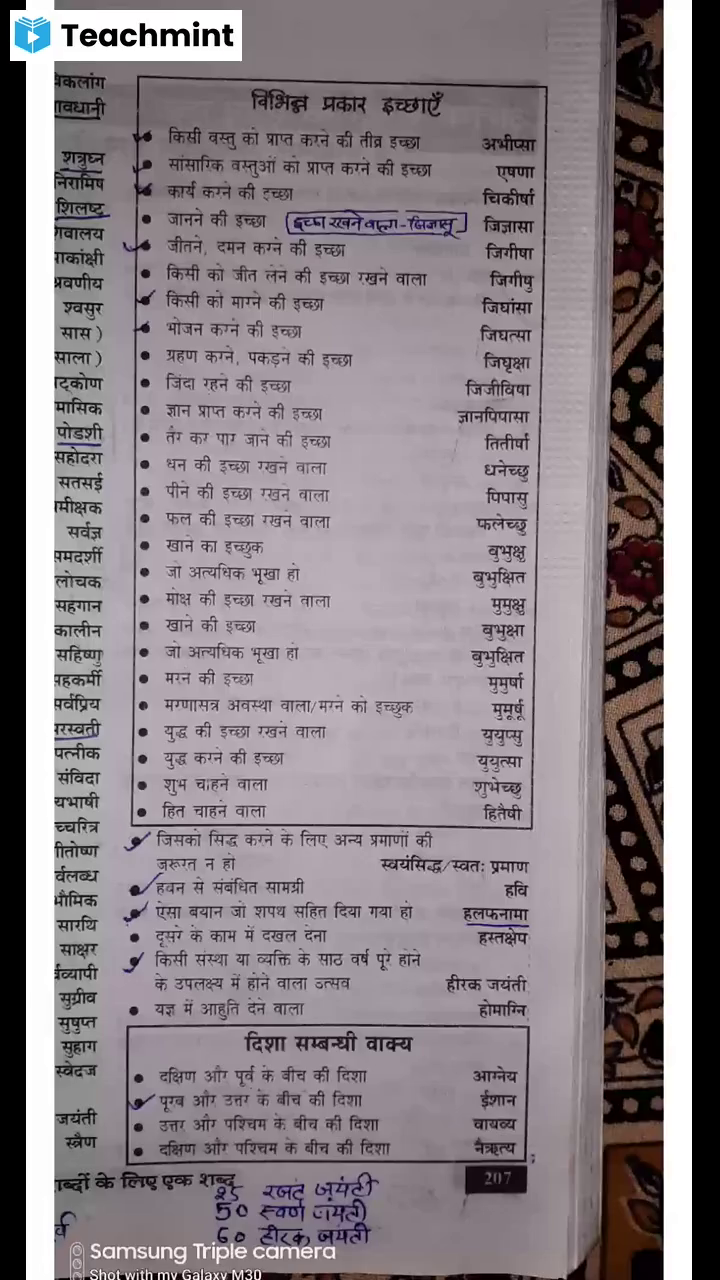 Teachmint
विकलांग
शत्रुघ्न
निरामिष
शिलष्ट
श्वसुर
सास )
साला )
मासिक
षोडशी
सहोदरा
सतसई
सर्वज्ञ
सहगान
सहिष्णु
संविदा
सारथि
साक्षर
सुग्रीव
सुषुप्त
सुहाग
स्वेदज
जयंती
स्त्रैण
विभिन्न प्रकार इच्छाएँ
• किसी वस्तु को प्राप्त करने की तीव्र इच्छा अभीप्सा
• सांसारिक वस्तुओं को प्राप्त करने की इच्छा एषणा
• कार्य करने की इच्छा चिकीर्षा
• जानने की इच्छा इच्छा रखने वाला - जिज्ञासू जिज्ञासा
• जीतने, दमन करने की इच्छा जिगीषा
• किसी को जीत लेने की इच्छा रखने वाला जिगीषु
• किसी को मारने की इच्छा जिघांसा
• भोजन करने की इच्छा जिघत्सा
• ग्रहण करने, पकड़ने की इच्छा जिघृक्षा
• जिंदा रहने की इच्छा जिजीविषा
• ज्ञान प्राप्त करने की इच्छा ज्ञानपिपासा
• तैर कर पार जाने की इच्छा तितीर्षा
• धन की इच्छा रखने वाला धनेच्छु
• पीने की इच्छा रखने वाला पिपासु
• फल की इच्छा रखने वाला फलेच्छु
• खाने का इच्छुक बुभुक्षु
• जो अत्यधिक भूखा हो बुभुक्षित
• मोक्ष की इच्छा रखने वाला मुमुक्षु
• खाने की इच्छा बुभुक्षा
• जो अत्यधिक भूखा हो बुभुक्षित
• मरने की इच्छा मुमुर्षा
• मरणासन्न अवस्था वाला/मरने को इच्छुक मुमूर्षू
• युद्ध की इच्छा रखने वाला युयुत्सु
• युद्ध करने की इच्छा युयुत्सा
• शुभ चाहने वाला शुभेच्छु
• हित चाहने वाला हितैषी
• जिसको सिद्ध करने के लिए अन्य प्रमाणों की
जरूरत न हो स्वयंसिद्ध/स्वतः प्रमाण
• हवन से संबंधित सामग्री हवि
• ऐसा बयान जो शपथ सहित दिया गया हो हलफनामा
• दूसरे के काम में दखल देना हस्तक्षेप
• किसी संस्था या व्यक्ति के साठ वर्ष पूरे होने
के उपलक्ष्य में होने वाला उत्सव हीरक जयंती
• यज्ञ में आहुति देने वाला होमाग्नि
दिशा सम्बन्धी वाक्य
• दक्षिण और पूर्व के बीच की दिशा आग्नेय
• पूरब और उत्तर के बीच की दिशा ईशान
• उत्तर और पश्चिम के बीच की दिशा वायव्य
• दक्षिण और पश्चिम के बीच की दिशा नैऋत्य
के लिए एक शब्द 207
25 रजत जयंती
50 स्वर्ण जयंती
60 हीरक जयंती
Samsung Triple camera
Shot with my Galaxy M30